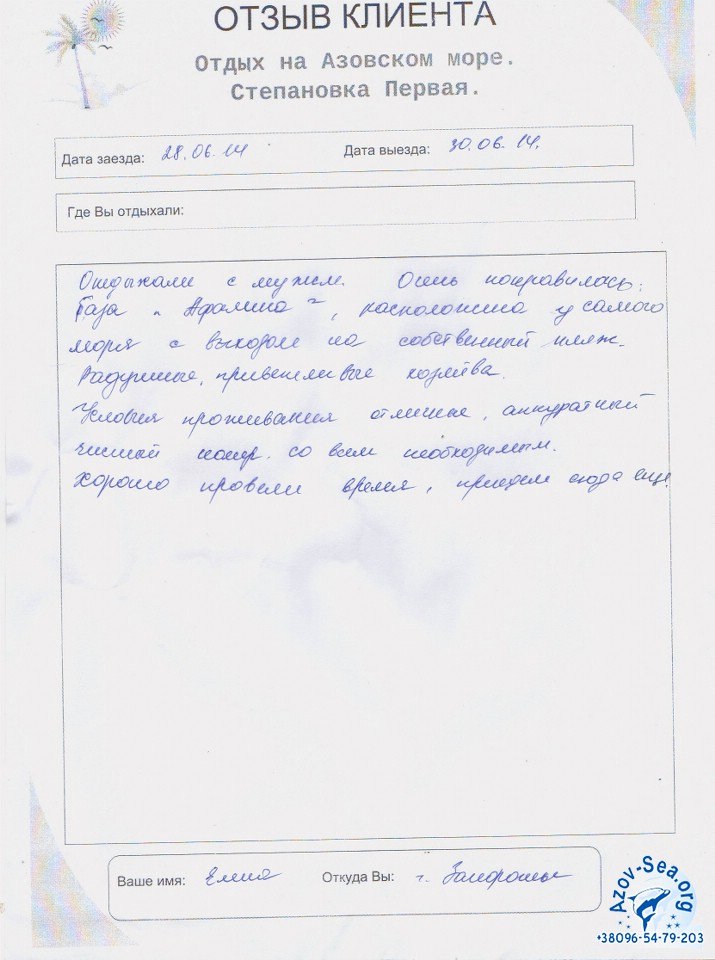 ОТЗЫВ КЛИЕНТА
Отдых на Азовском море.
Степановка Первая.
Дата заезда: 28.06.14 Дата выезда: 30.06.14.
Где Вы отдыхали:
Отдыхали с мужем. Очень понравилось.
База „Афалина", расположена у самого
моря с выходом на собственный пляж.
Радушные, приветливые хозяева.
Условия проживания отличные, аккуратный
чистый номер. со всем необходимым.
Хорошо провели время, приедем сюда еще.
Ваше имя: Елена Откуда Вы: г. Запорожье
Azov-Sea.org
+38096-54-79-203